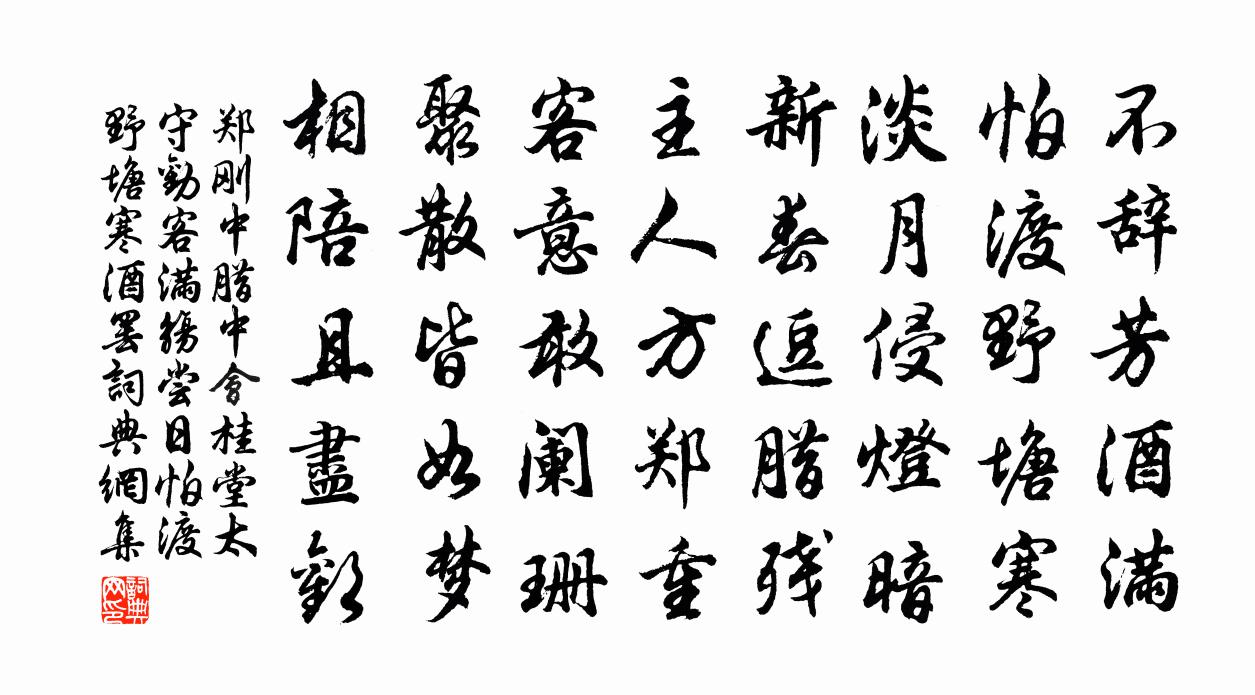 不辞芳酒满
怕渡野塘寒
淡月侵燈暗
新春逗腊残
主人方郑重
客意敢阑珊
聚散皆如梦
相陪且盡歡
郑刚中腊中會桂堂太
守勸客滿觴嘗日怕渡
野塘寒酒罢詞典網集
詞典网印